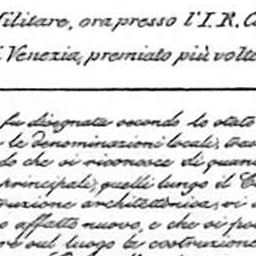 Militare, ora presso l'I.R. C
Venezia, premiato più volte
fu disegnata secondo lo stato
le denominazioni locali, tra
do che si riconosce di quan
principali, quelli lungo il C
ruzione architettonica, vi
affatto nuovo, e che si po
re sul luogo la costruzione